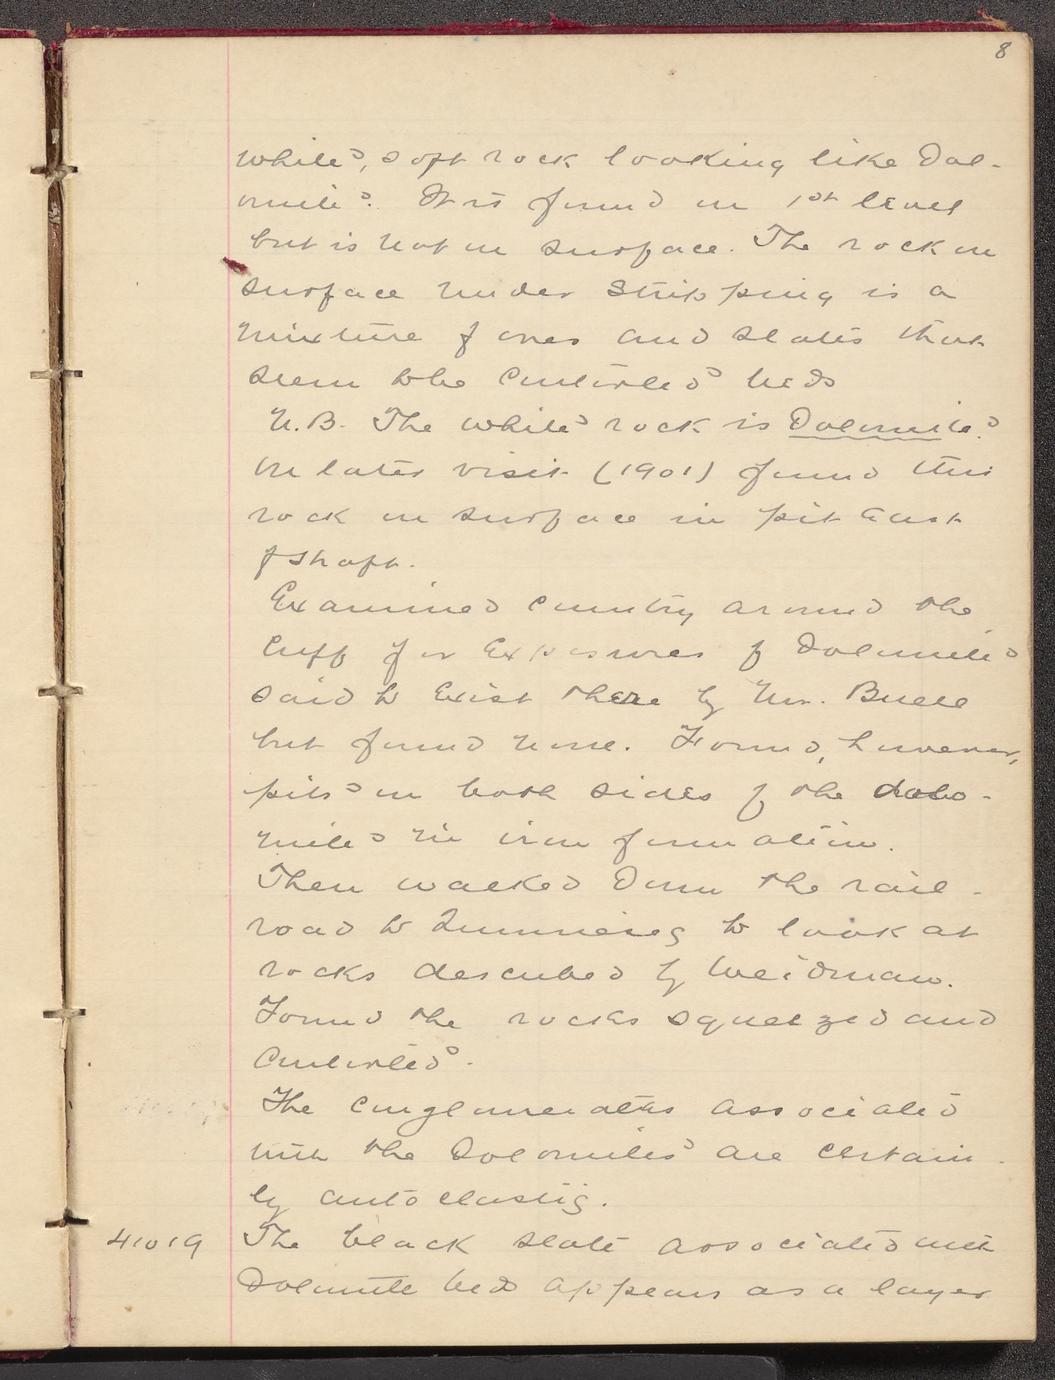 8
white, soft rock looking like Dol-
omite. It is found on 1st level
but is not on surface. The rock on
surface under stripping is a
mixture of ores and slates that
seem to be contorted beds
N.B. The white rock is Dolomite.
On later visit (1901) found this
rock on surface in pit East
of shaft.
Examined country around the
Cuff for Exposures of Dolomite
said to Exist there by Mr. Buell
but found none. Found, however,
pits on both sides of the dolo-
mite in iron formation.
Then walked down the rail-
road to to look at
rocks described by Weidman.
Found the rocks squeezed and
contorted.
The conglomerates associated
with the Dolomites are certain-
ly autoclastic.
41019 The black slate associated with
Dolomite bed appears as a layer